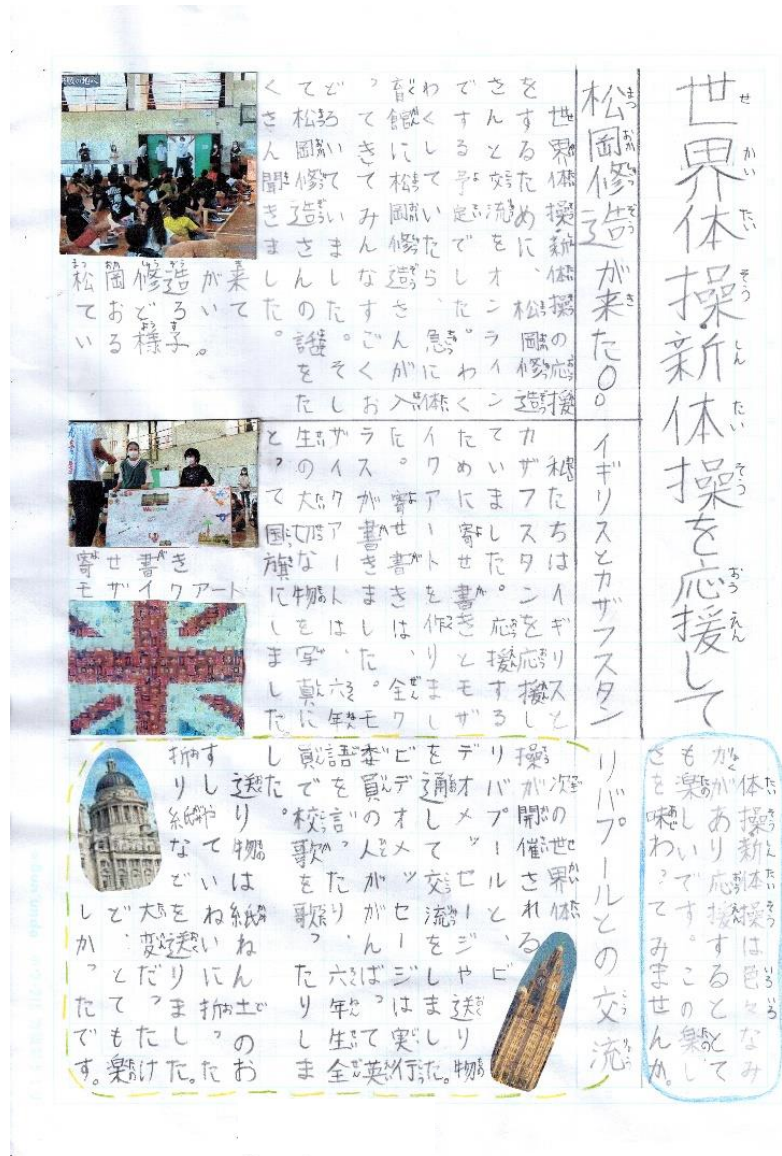 世界体操・新体操を応援して
松岡修造が来た○。
世界体操・新体操の応援
をするために、松岡修造
さんと交流をオンライン
でする予定でした。わく
わくしていたら、急に体
育館に松岡修造さんが入
ってきてみんなすごくお
どろいていました。そし
て松岡修造さんの話をた
くさん聞きました。
松岡修造が来て
おどろい
ている様子。
イギリスとカザフスタン
私たちはイギリスと
カザフスタンを応援し
ていました。応援する
ために寄せ書きとモザ
イクアートを作りまし
た。寄せ書きは、全ク
ラスが書きました。モ
ザイクアートは、六年
生の大切な物を写真に
とって国旗にしました。
寄せ書き
モザイクアート
体操新体操は色々なみ
がありがあり応援するととて
も楽しいです。この楽し
さを味わってみませんか。
リバプールとの交流
次の世界体
操が開催される
リバプールと、ビ
デオメッセージや送り物
を通して交流をしました。
ビデオメッセージは実行
委員の人ががんばって英
語を言ったり、六年生全
員で校歌を歌ったりしま
した。
送り物は紙ねん土のお
すしやていねいに折った
折り紙などを送りました。
大変だったけ
ど、とても楽
しかったです。